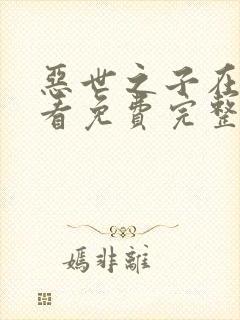 惡世之子在
看免費完整
媽非離